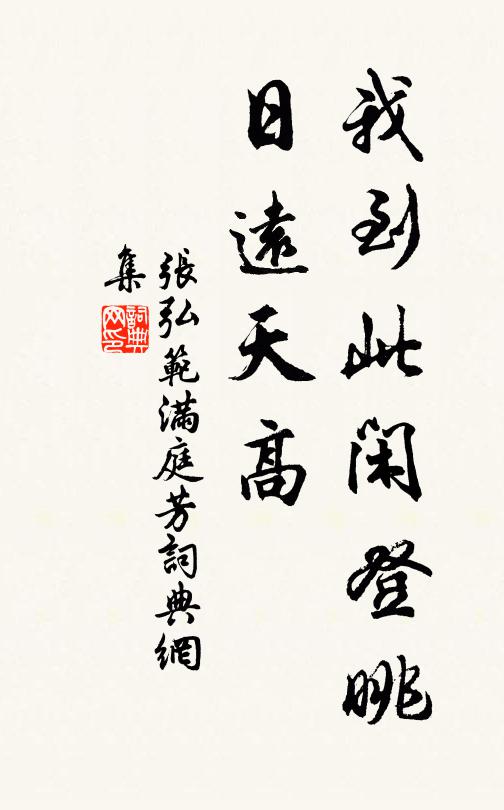 我到此閑登眺
日遠天高
張弘範滿庭芳詞典網
集
詞典
网印